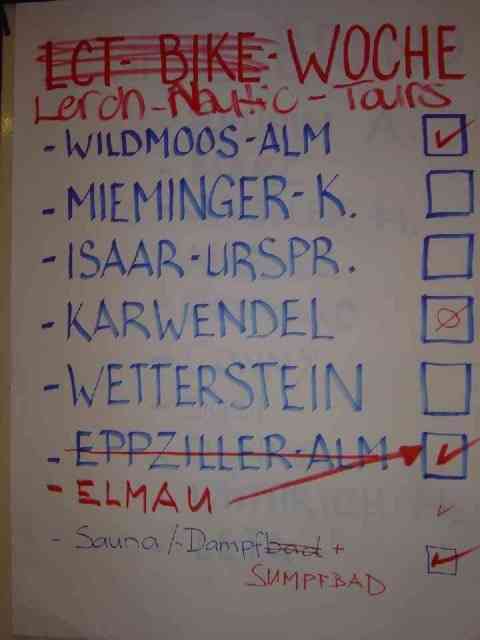 LCT-BIKE-WOCHE
Lerch-Nautic-Tours
- WILDMOOS-ALM
- MIEMINGER-K.
- ISAAR-URSPR.
- KARWENDEL
- WETTERSTEIN
- EPPZILLER-ALM
- ELMAU
- Sauna/-Dampfbad +
SUMPFBAD